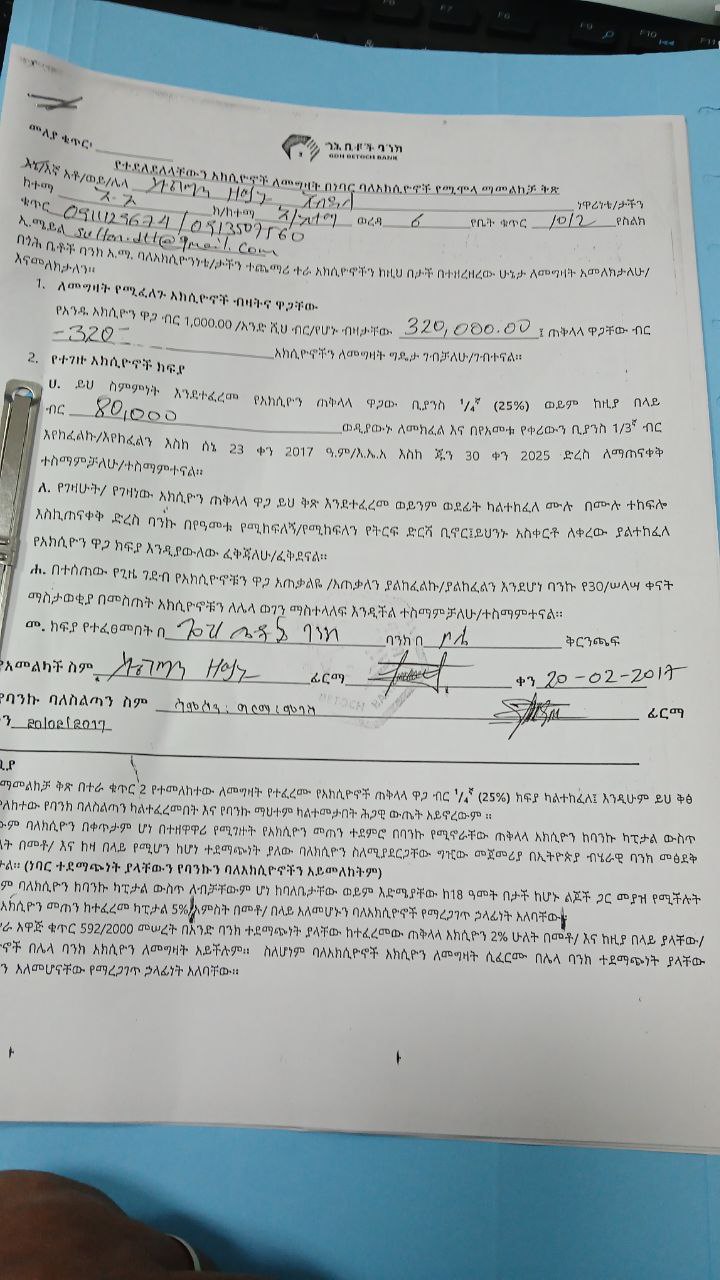 መለያ ቁጥር፡
ጎሕ ቤቶች ባንክ
GOH BETOCH BANK
የተደለደለላቸውን አክሲዮኖች ለመግዛት በነባር ባለአክሲዮኖች የሚሞላ ማመልከቻ ቅጽ
እኔ/እኛ አቶ/ወይ/ሌላ ነዋሪነቴ/ታችን
ከተማ አ.አ ክ/ከተማ ወረዳ 6 የቤት ቁጥር 1012 የስልክ
ቁጥር 0911129674 / 0913507560
ኢ.ሜይል sultan.dtt@gmail.com
በጎሕ ቤቶች ባንክ አ.ማ. ባለአክሲዮንነቴ/ታችን ተጨማሪ ተራ አክሲዮኖችን ከዚህ በታች በተዘረዘረው ሁኔታ ለመግዛት አመለክታለሁ/
እናመለክታለን፡፡
1. ለመግዛት የሚፈለጉ አክሲዮኖች ብዛትና ዋጋቸው
የአንዱ አክሲዮን ዋጋ ብር 1,000.00 /አንድ ሺህ ብር/የሆኑ ብዛታቸው 320,000.00 ፤ ጠቅላላ ዋጋቸው ብር
-320- አክሲዮኖችን ለመግዛት ግዴታ ገብቻለሁ/ገብተናል፡፡
2. የተገዙ አክሲዮኖች ክፍያ
ሀ. ይህ ስምምነት እንደተፈረመ የአክሲዮን ጠቅላላ ዋጋው ቢያንስ 1/4ኛ (25%) ወይም ከዚያ በላይ
ብር 80,000 ወዲያውኑ ለመክፈል እና በየአመቱ የቀሪውን ቢያንስ 1/3ኛ ብር
እየከፈልኩ/እየከፈልን እስከ ሰኔ 23 ቀን 2017 ዓ.ም/እ.ኤ.አ እስከ ጁን 30 ቀን 2025 ድረስ ለማጠናቀቅ
ተስማምቻለሁ/ተስማምተናል፡፡
ለ. የገዛሁት/ የገዛነው አክሲዮን ጠቅላላ ዋጋ ይህ ቅጽ እንደተፈረመ ወይንም ወደፊት ካልተከፈለ ሙሉ በሙሉ ተከፍሎ
እስኪጠናቀቅ ድረስ ባንኩ በየዓመቱ የሚከፍለኝ/የሚከፍለን የትርፍ ድርሻ ቢኖር፤ይህንኑ አስቀርቶ ለቀረው ያልተከፈለ
የአክሲዮን ዋጋ ክፍያ እንዲያውለው ፈቅጃለሁ/ፈቅደናል፡፡
ሐ. በተሰጠው የጊዜ ገደብ የአክሲዮኖቹን ዋጋ አጠቃልዬ /አጠቃለን ያልከፈልኩ/ያልከፈልን እንደሆነ ባንኩ የ30/ሠላሣ ቀናት
ማስታወቂያ በመስጠት አክሲዮኖቹን ለሌላ ወገን ማስተላለፍ እንዲችል ተስማምቻለሁ/ተስማምተናል፡፡
መ. ክፍያ የተፈፀመበት በ ባንክ ባንክ በ ቦሌ ቅርንጫፍ
የአመልካች ስም ፊርማ ቀን 20-02-2017
የባንኩ ባለስልጣን ስም ፊርማ
ን 20/02/2017
ማመልከቻ ቅጽ በተራ ቁጥር 2 የተመለከተው ለመግዛት የተፈረሙ የአክሲዮኖች ጠቅላላ ዋጋ ብር 1/4ኛ (25%) ክፍያ ካልተከፈለ፤ እንዲሁም ይህ ቅፅ
ለከተው የባንክ ባለስልጣን ካልተፈረመበት እና የባንኩ ማህተም ካልተመታበት ሕጋዊ ውጤት አይኖረውም ፡፡
ውም ባለክሲዮን በቀጥታም ሆነ በተዘዋዋሪ የሚገዙት የአክሲዮን መጠን ተደምሮ በባንኩ የሚኖራቸው ጠቅላላ አክሲዮን ከባንኩ ካፒታል ውስጥ
ለት በመቶ/ እና ከዛ በላይ የሚሆን ከሆነ ተደማጭነት ያለው ባለክሲዮን ስለሚያደርጋቸው ግዢው መጀመሪያ በኢትዮጵያ ብሄራዊ ባንክ መፅደቅ
ታል፡፡ (ነባር ተደማጭነት ያላቸውን የባንኩን ባለአክሲዮኖችን አይመለከትም)
ም ባለክሲዮን ከባንኩ ካፒታል ውስጥ ለብቻቸውም ሆነ ከባለቤታቸው ወይም እድሜያቸው ከ18 ዓመት በታች ከሆኑ ልጆች ጋር መያዝ የሚችሉት
አክሲዮን መጠን ከተፈረመ ካፒታል 5% /አምስት በመቶ/ በላይ አለመሆኑን ባለአክሲዮኖች የማረጋገጥ ኃላፊነት አለባቸው
ራ አዋጅ ቁጥር 592/2000 መሠረት በአንድ ባንክ ተደማጭነት ያላቸው ከተፈረመው ጠቅላላ አክሲዮን 2% ሁለት በመቶ/ እና ከዚያ በላይ ያላቸው/
ኖች በሌላ ባንክ አክሲዮን ለመግዛት አይችሉም፡፡ ስለሆነም ባለአክሲዮኖች አክሲዮን ለመግዛት ሲፈርሙ በሌላ ባንክ ተደማጭነት ያላቸው
ን አለመሆናቸው የማረጋገጥ ኃላፊነት አለባቸው፡፡